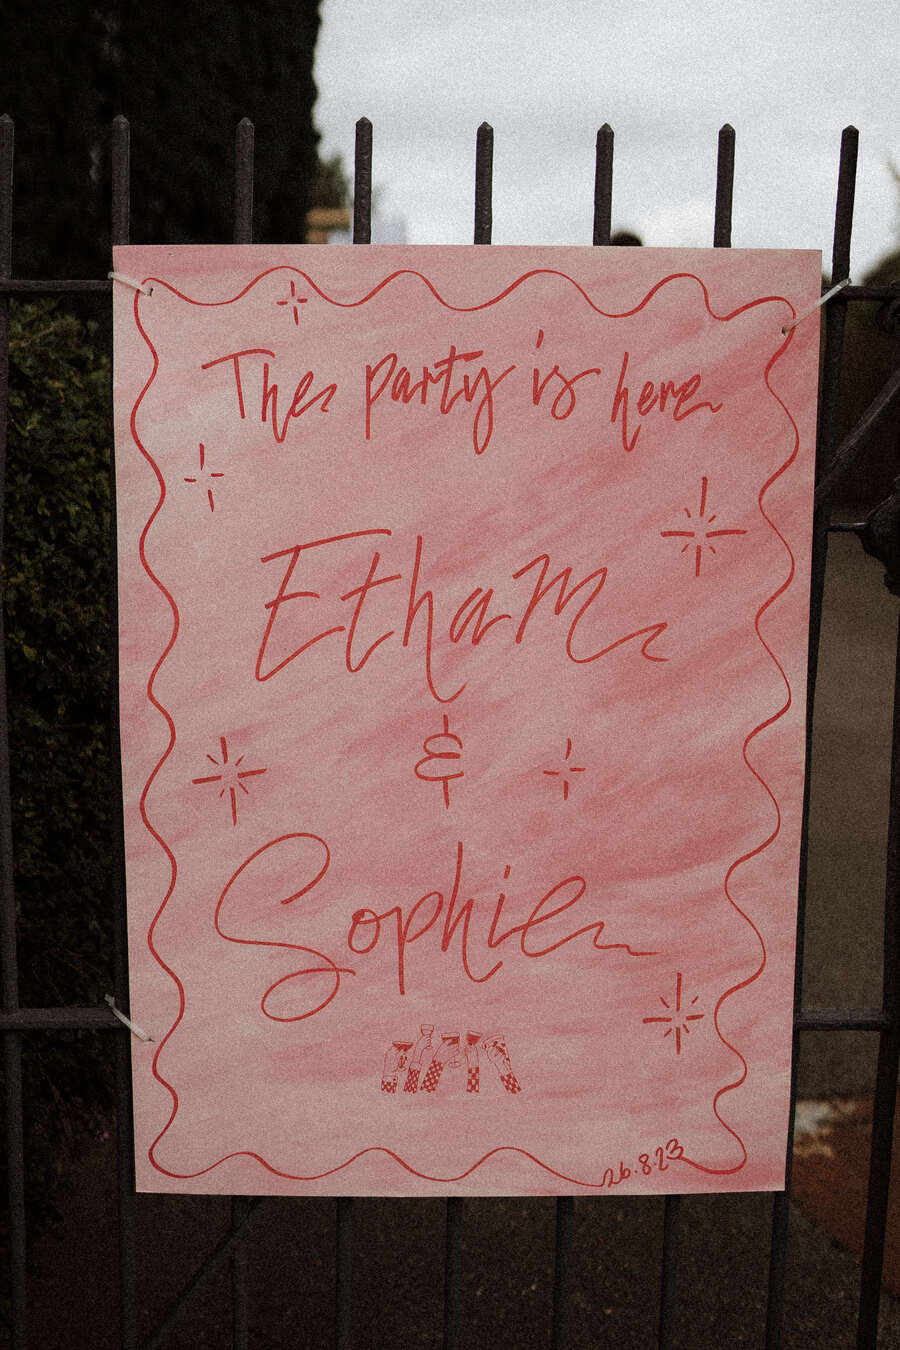 The party is here
Ethan
&
Sophie
26.8.23